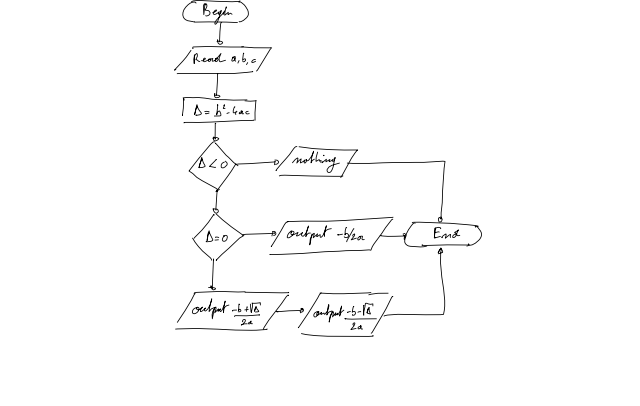 Begin
Read a,b,c
Δ = b² - 4ac
Δ < 0
nothing
Δ = 0
output -b/2a
End
output -b+√Δ/2a
output -b-√Δ/2a